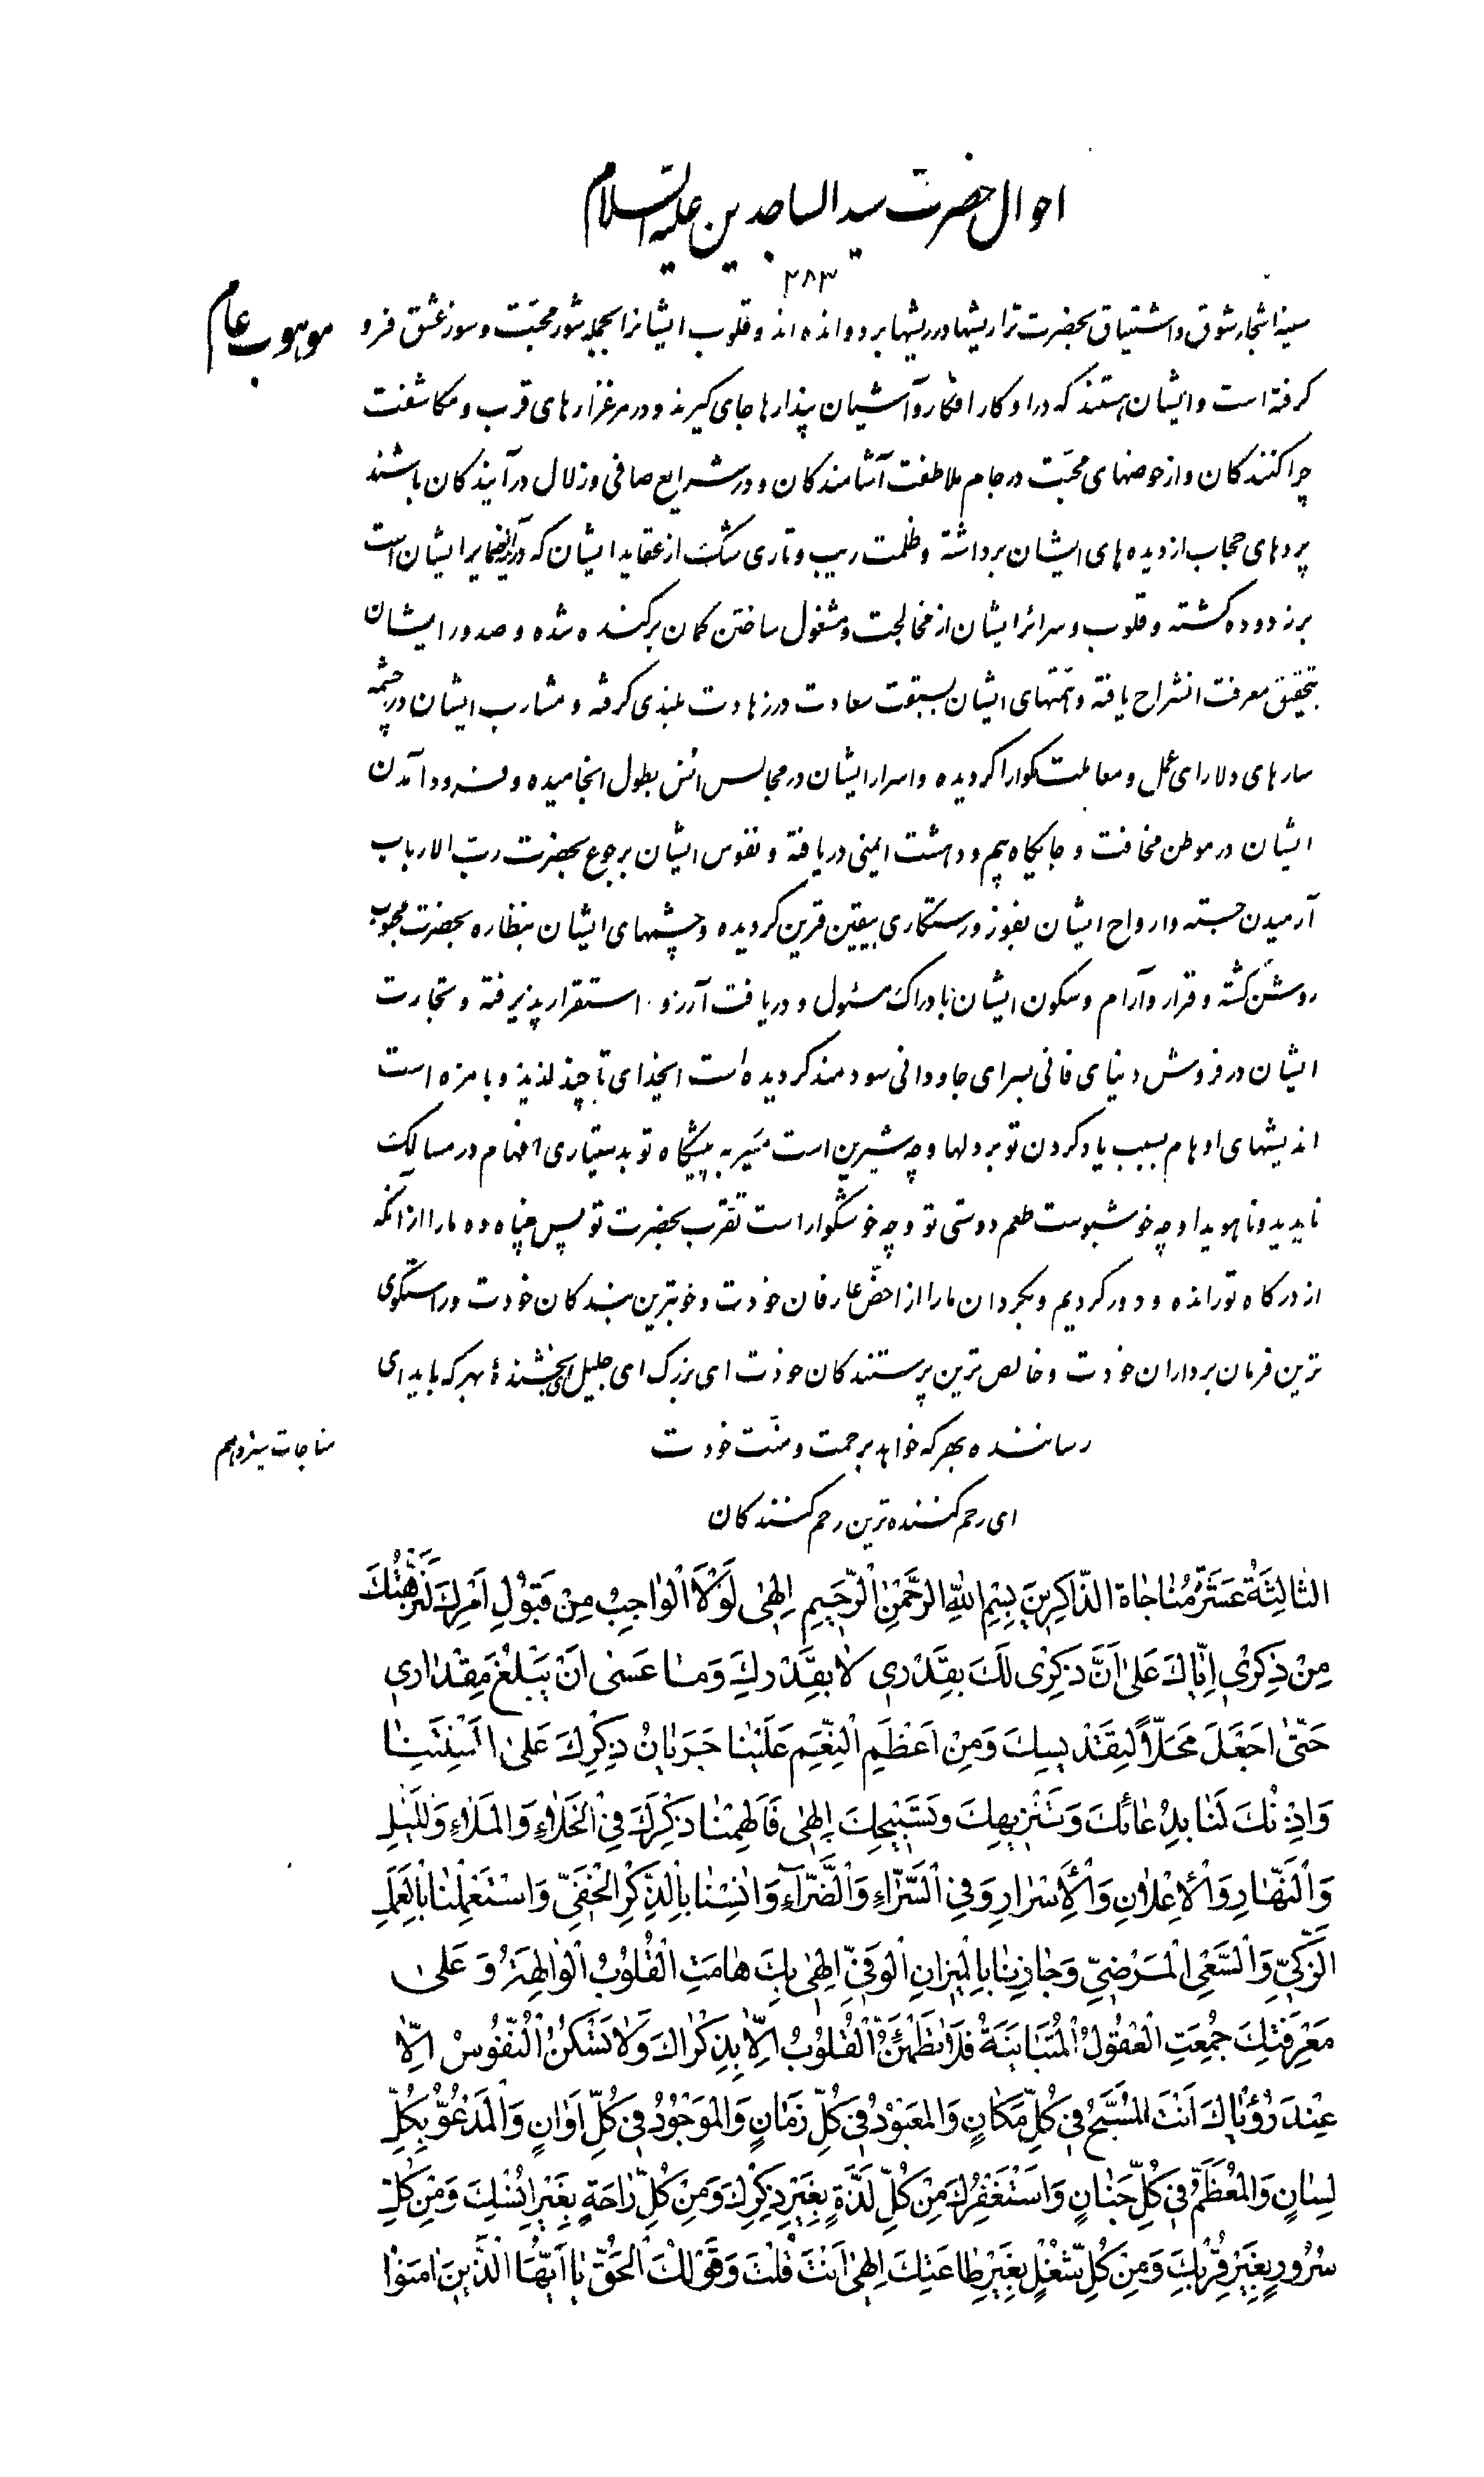 احوال حضرت سید الساجدین علیه السلام
۲۸۳
موهوب عام
سینه اشجار شوق و اشتیاق بحضرت ترا ریشها در ریشها بر دوانده اند و قلوب ایشانرا بجمله شور محبّت و سوز عشق فرو
گرفته است و ایشان استند که در اوکار افکار و آشیان پندارها جای گیرند و در مرغزارهای قرب و مکاشفت
چراکنندکان و از حوضهای محبّت در جام ملاطفت آشامندکان و در شرایع صافی و زلال در آیندکان باشند
پردهای حجاب از دیده‌های ایشان برداشته و ظلمت ریب و تاری شک از عقاید ایشان که در ضمایر ایشان است
بر زدوده کشته و قلوب و سرائر ایشان از مخالجت و مشغول ساختن کمان برکنده شده و صدور ایشان
بتحقیق معرفت انشراح یافته و همّتهای ایشان بسبقت سعادت در زهادت بلندی کرفته و مشارب ایشان در چشمه
سارهای دلارای عمل و معاملت کوارا کردیده و اسرار ایشان در مجالس انس بطول انجامیده و فرود آمدن
ایشان در موطن مخافت و جایکاه بیم و دهشت ایمنی دریافته و نفوس ایشان برجوع بحضرت ربّ الارباب
آرمیدن جسته و ارواح ایشان بفوز و رستکاری بیقین قرین کردیده و چشمهای ایشان بنظاره بحضرت محبوب
روشن کشته و قرار و آرام و سکون ایشان بادراک مسئول و دریافت آرزو استقرار پذیرفته و تجارت
ایشان در فروش دنیای فانی بسرای جاودانی سودمند کردیده است ایخدای تا چند لذیذ و بامزه است
اندیشهای اوهام بسبب یاد کردن تو بر دلها و چه شیرین است مسیر به پیشکاه تو بدستیاری افهام در مسالک
ناپدید و ناهویدا و چه خوشبوست طعم دوستی تو و چه خوشکوار است تقرب بحضرت تو پس پناه ده ما را از آنکه
از درکاه تو رانده و دور کردیم و بکردان ما را از اخصّ عارفان خودت و خوبترین بندکان خودت و راستکوی
ترین فرمان برداران خودت و خالص ترین پرستندکان خودت ای بزرک ای جلیل ای بخشندهٔ بهر که باید ای
رساننده بهر که خواهد برحمت و منّت خودت
مناجات سیزدهم
ای رحم کننده ترین رحم کنندکان
الثالِثَةُ عَشَرَ مُناجاة الذّاكِرينَ بِسْمِ اللهِ الرَّحْمٰنِ الرَّحيمِ اِلهٰى لَوْلاَ الْواجِبُ مِنْ قَبُولِ اَمْرِكَ لَنَزَّهْتُكَ
مِنْ ذِكْرى اِيّاكَ عَلىٰ اَنَّ ذِكْرى لَكَ بِقَدْرى لا بِقَدْرِكَ وَما عَسىٰ اَنْ يَبْلُغَ مِقْدارى
حَتّىٰ اُجْعَلَ مَحَلاًّ لِتَقْديسِكَ وَمِنْ اَعْظَمِ النِّعَمِ عَلَيْنا جَرَيانُ ذِكْرِكَ عَلىٰ اَلْسِنَتِنا
وَاِذْنُكَ لَنا بِدُعائِكَ وَتَنْزيهِكَ وَتَسْبيحِكَ اِلهٰى فَاَلْهِمْنا ذِكْرَكَ فِى الْخَلاءِ وَالْمَلاءِ وَاللَّيْلِ
وَالنَّهارِ وَالاِعْلانِ وَالاَسْرارِ وَفِى السَّرّاءِ وَالضَّرّآءِ وَانِسْنا بِالذِّكْرِ الْخَفِىِّ وَاسْتَعْمِلْنا بِالْعَمَلِ
الزَّكِىِّ وَالسَّعْىِ الْمَرْضِىِّ وَجازِنا بِالْميزانِ الْوَفِىِّ اِلهٰى بِكَ هامَتِ الْقُلُوبُ الْوالِهَةُ وَ عَلىٰ
مَعْرِفَتِكَ جُمِعَتِ الْعُقُولُ الْمُتَبايِنَةُ فَلا تَطْمَئِنُّ الْقُلُوبُ اِلاّ بِذِكْراكَ وَلا تَسْكُنُ النُّفُوسُ اِلاّ
عِنْدَ رُؤْياكَ اَنْتَ الْمُسَبَّحُ فى كُلِّ مَكانٍ وَالْمَعْبُودُ فى كُلِّ زَمانٍ وَالْمَوْجُودُ فى كُلِّ اَوانٍ وَالْمَدْعُوُّ بِكُلِّ
لِسانٍ وَالْمُعَظَّمُ فى كُلِّ جَنانٍ وَاَسْتَغْفِرُكَ مِنْ كُلِّ لَذَّةٍ بِغَيْرِ ذِكْرِكَ وَمِنْ كُلِّ راحَةٍ بِغَيْرِ اُنْسِكَ وَمِنْ كُلِّ
سُرُورٍ بِغَيْرِ قُرْبِكَ وَمِنْ كُلِّ شُغْلٍ بِغَيْرِ طاعَتِكَ اِلهٰى اَنْتَ قُلْتَ وَقَوْلُكَ الْحَقُّ يا اَيُّهَا الَّذينَ امَنُوا